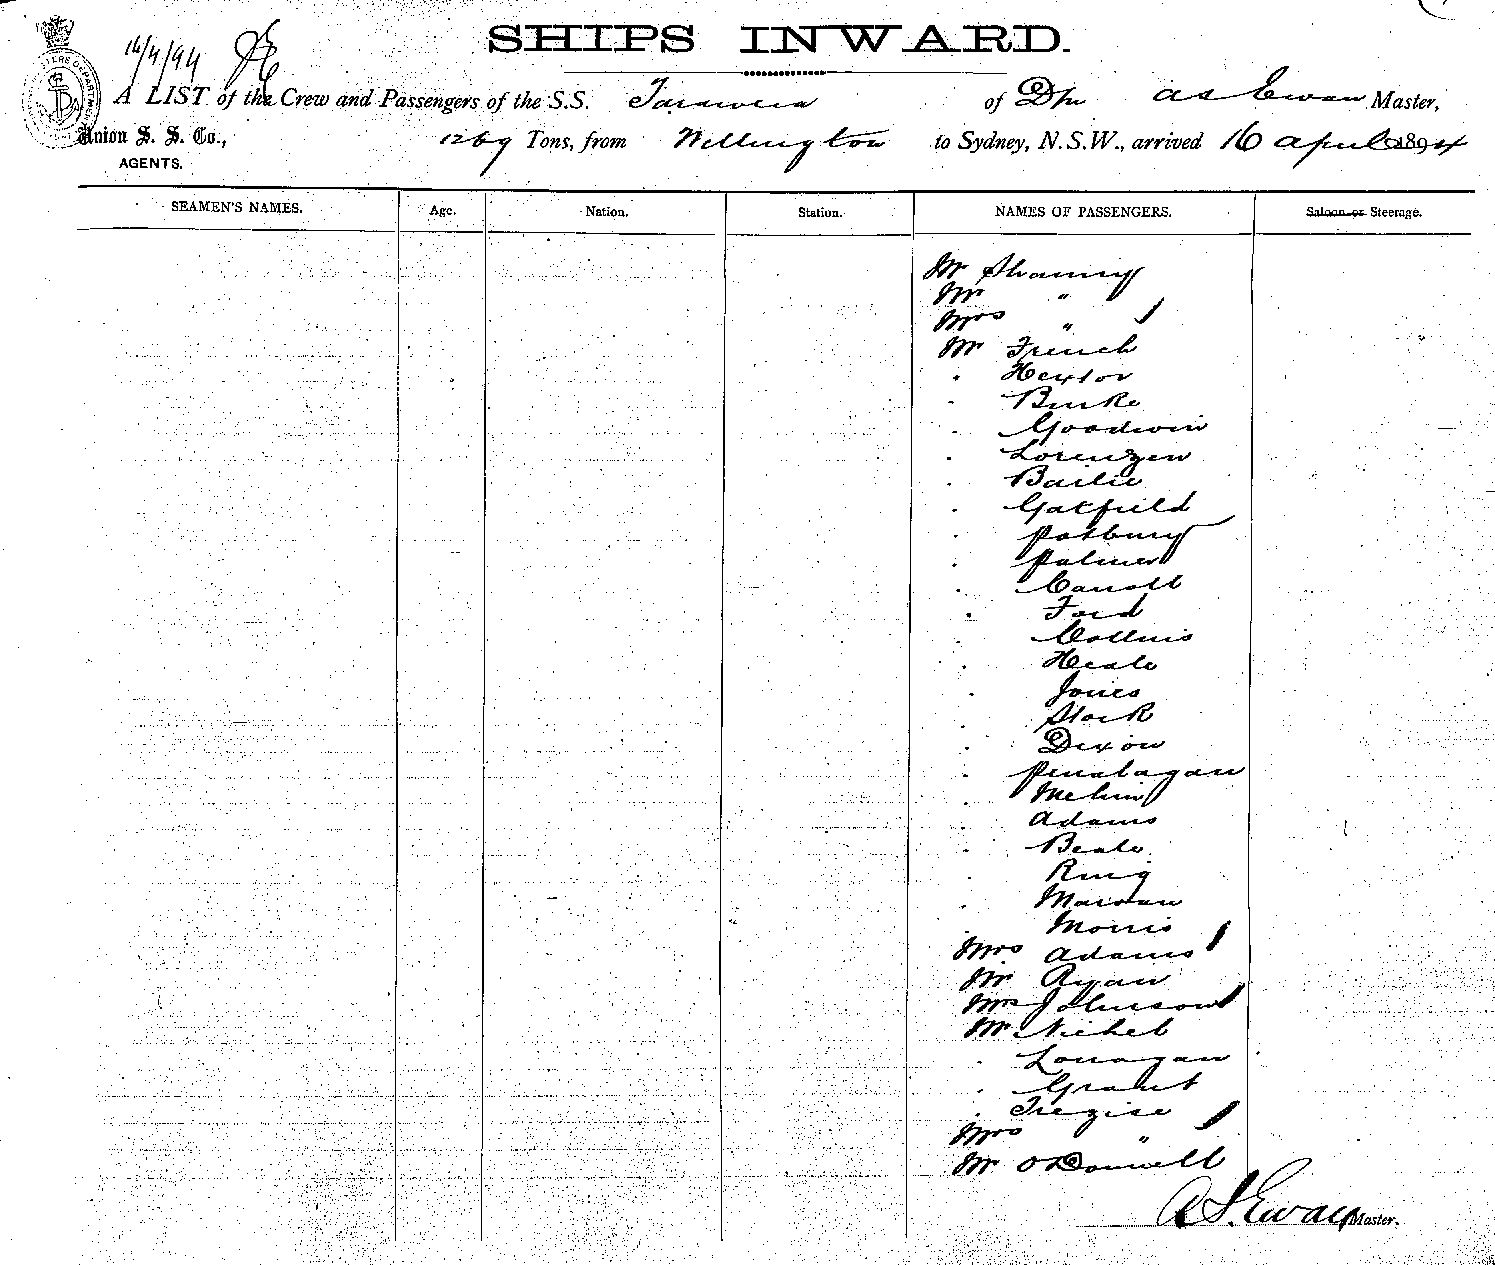 SHIPS INWARD.
16/4/94
A LIST of the Crew and Passengers of the S.S. Tarawera of Dn A S Ewan Master,
Union S. S. Co., 1269 Tons, from Wellington to Sydney, N.S.W., arrived 16 April 1894
AGENTS.
SEAMEN'S NAMES. Age. Nation. Station. NAMES OF PASSENGERS. Saloon or Steerage.
Mr
Mr "
Mrs " 1
Mr French
" Hextor
" Burke
" Goodwin
" Lorenzen
" Bailie
" Gatfield
" Potbury
" Palmer
" Carroll
" Ford
" Collins
" Heale
" Jones
" Stock
" Dixon
"
"
" Adams
" Beale
" Ring
"
" Morris
Mrs Adams 1
Mr Ryan
Mrs Johnson 1
Mr Nichol
" Lonagan
" Grant
" Tregise
Mrs " 1
Mr O'Donnell
A S. Ewan Master.